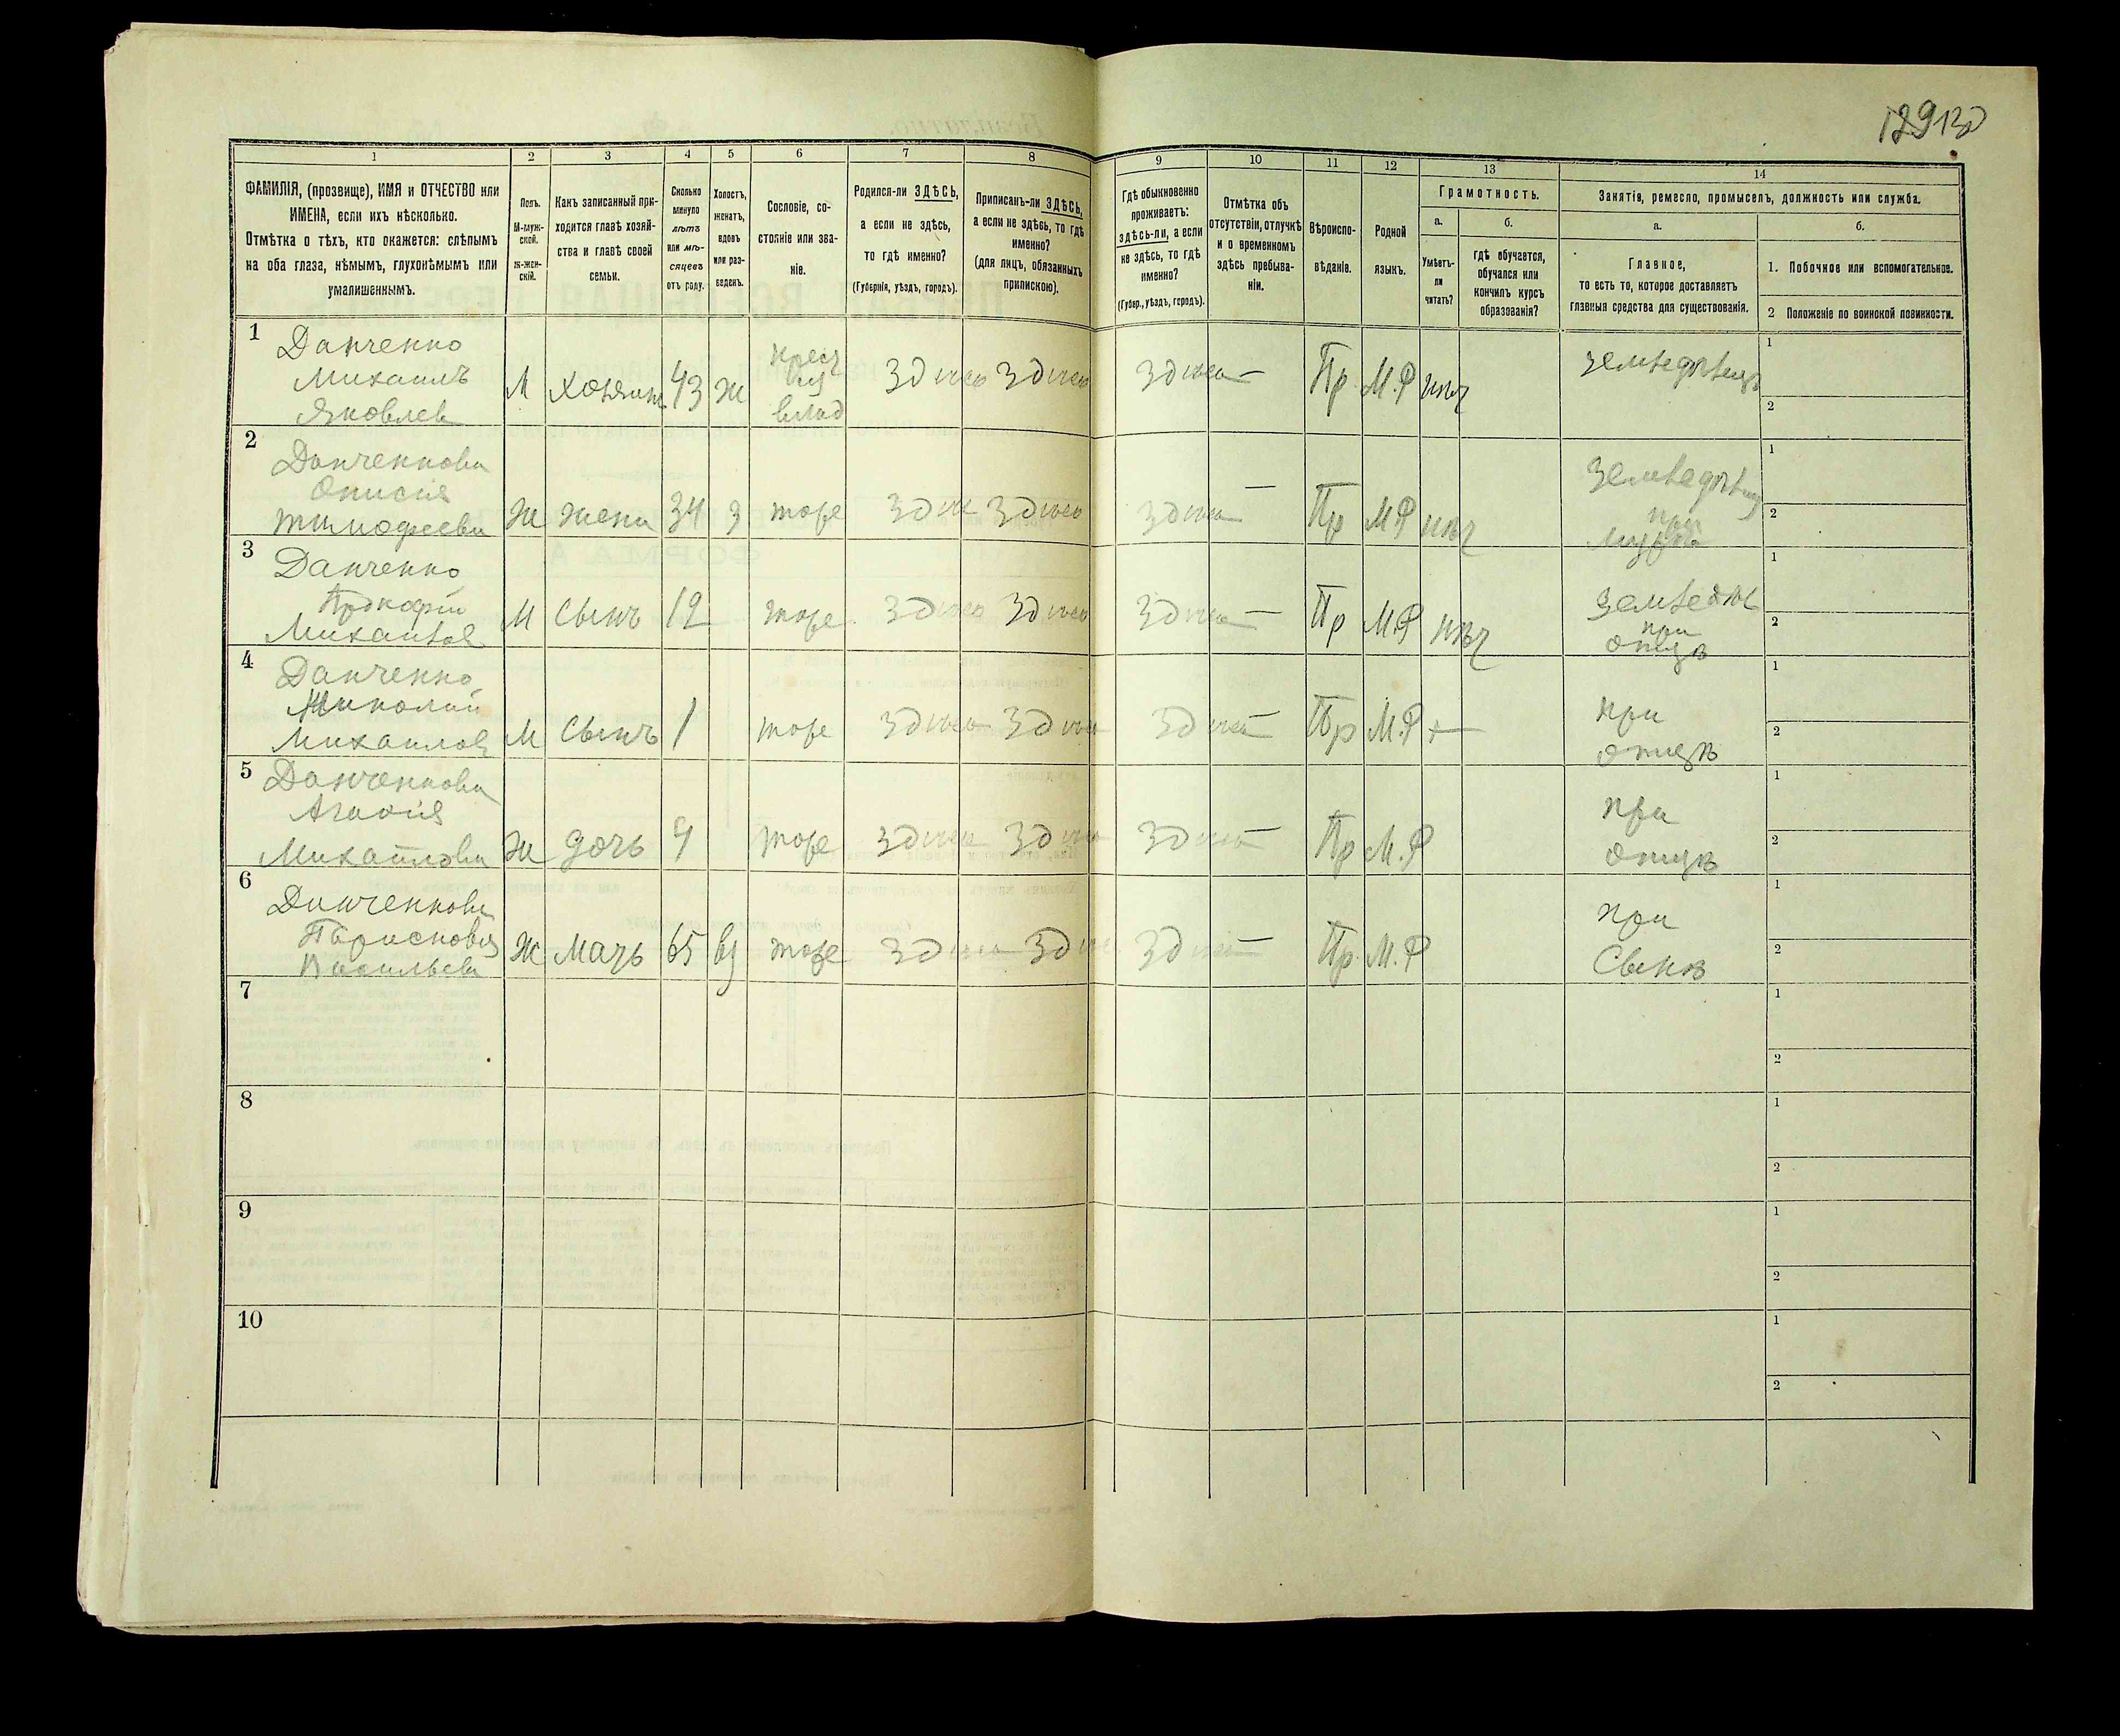 129130
1 2 3 4 5 6 7 8 9 10 11 12 13 14
ФАМИЛІЯ, (прозвище), ИМЯ и ОТЧЕСТВО или
ИМЕНА, если ихъ нѣсколько.
Отмѣтка о тѣхъ, кто окажется: слѣпымъ
на оба глаза, нѣмымъ, глухонѣмымъ или
умалишеннымъ.
Полъ.
М-муж-
ской.
Ж-жен-
скій.
Какъ записанный при-
ходится главѣ хозяй-
ства и главѣ своей
семьи.
Сколько
минуло
лѣтъ
или мѣ-
сяцевъ
отъ роду.
Холостъ,
женатъ,
вдовъ
или раз-
веденъ.
Сословіе, со-
стояніе или зва-
ніе.
Родился-ли ЗДѢСЬ,
а если не здѣсь,
то гдѣ именно?
(Губернія, уѣздъ, городъ).
Приписанъ-ли ЗДѢСЬ,
а если не здѣсь, то гдѣ
именно?
(для лицъ, обязанныхъ
припискою).
Гдѣ обыкновенно
проживаетъ:
здѣсь-ли, а если
не здѣсь, то гдѣ
именно?
(Губер., уѣздъ, городъ).
Отмѣтка объ
отсутствіи, отлучкѣ
и о временномъ
здѣсь пребыва-
ніи.
Вѣроиспо-
вѣданіе.
Родной
языкъ.
Грамотность.
а.
Умѣетъ-
ли
читать?
б.
гдѣ обучается,
обучался или
кончилъ курсъ
образованія?
Занятія, ремесло, промыселъ, должность или служба.
а.
Главное,
то есть то, которое доставляетъ
главныя средства для существованія.
б.
1. Побочное или вспомогательное.
2 Положеніе по воинской повинности.
1
Данченко
Михаилъ
Яковлев
М Хозяинъ 43 Ж
крест
влад
Здись Здись Здись — Пр М.Р нѣт
1
2
2
Данченкова
Тимофеева
Ж жена 34 З тоже Здись Здись Здись — Пр М.Р нѣт
при
1
2
3
Данченко
Прокофій
Михаилов
М Сынъ 12 тоже Здись Здись Здись — Пр М.Р нѣт
при
отцѣ
1
2
4
Данченко
Николай
Михаилов
М Сынъ 1 тоже Здись Здись Здись — Пр М.Р —
при
отцѣ
1
2
5
Данченкова
Михайлова
Ж дочь 4 тоже Здись Здись Здись — Пр М.Р
при
отцѣ
1
2
6
Данченкова
Васильева
Ж мать 65 вд тоже Здись Здись Здись — Пр М.Р
при
Сынѣ
1
2
7
1
2
8
1
2
9
1
2
10
1
2